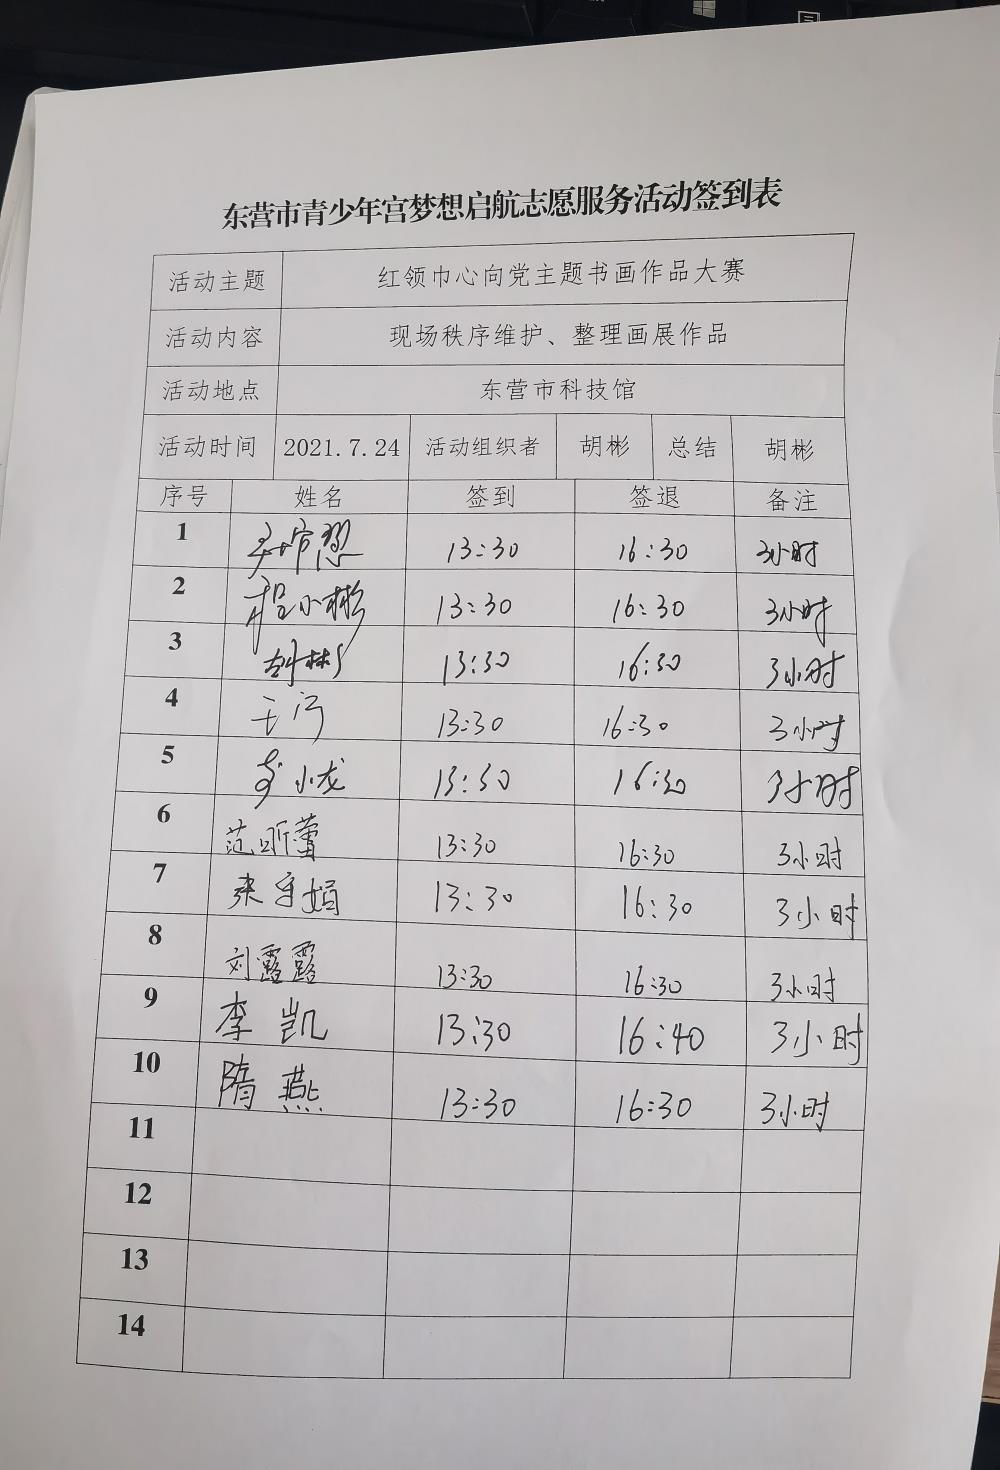 东营市青少年宫梦想启航志愿服务活动签到表
活动主题 红领巾心向党主题书画作品大赛
活动内容 现场秩序维护、整理画展作品
活动地点 东营市科技馆
活动时间 2021.7.24 活动组织者 胡彬 总结 胡彬
序号 姓名 签到 签退 备注
1 13:30 16:30 3小时
2 程小彬 13:30 16:30 3小时
3 胡彬 13:30 16:30 3小时
4 13:30 16:30 3小时
5 李小龙 13:30 16:30 3小时
6 范昕蕾 13:30 16:30 3小时
7 13:30 16:30 3小时
8 刘露露 13:30 16:30 3小时
9 李凯 13:30 16:40 3小时
10 隋燕 13:30 16:30 3小时
11
12
13
14